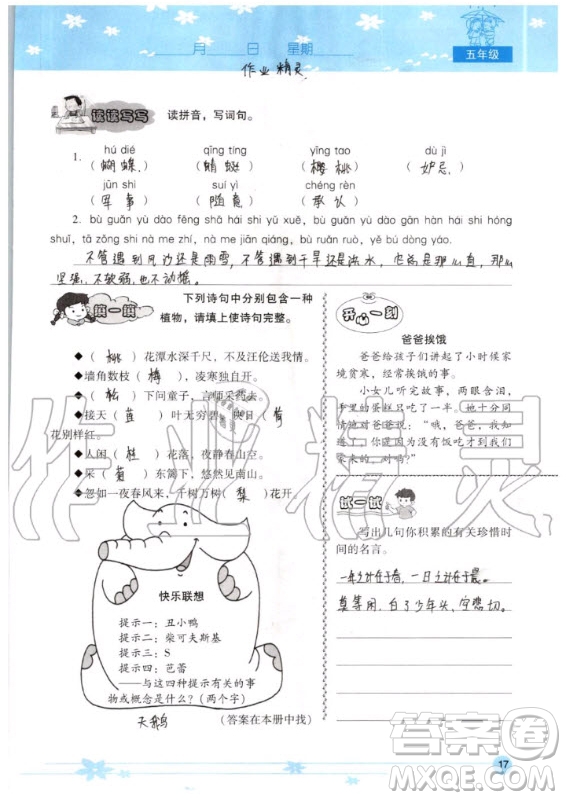 月 日 星期
五年级
作业精灵
读读写写 读拼音，写词句。
hú dié qīng tíng yīng tao dù jì
1.（蝴蝶）（蜻蜓）（樱桃）（妒忌）
jūn shì suí yì chéng rèn
（军事）（随意）（承认）
2. bù guǎn yù dào fēng shā hái shi yǔ xuě, bù guǎn yù dào gān hàn hái shi hóng
shuǐ, tā zǒng shì nà me zhí, nà me jiān qiáng, bù ruǎn ruò, yě bù dòng yáo.
不管遇到风沙还是雨雪，不管遇到干旱还是洪水，它总是那么直，那么
坚强，不软弱，也不动摇。
填一填
下列诗句中分别包含一种
植物，请填上使诗句完整。
◆（桃）花潭水深千尺，不及汪伦送我情。
◆墙角数枝（梅），凌寒独自开。
◆（松）下问童子，言师采药去。
◆接天（莲）叶无穷碧，映日（荷）
花别样红。
◆人闲（桂）花落，夜静春山空。
◆采（菊）东篱下，悠然见南山。
◆忽如一夜春风来，千树万树（梨）花开。
快乐联想
提示一：丑小鸭
提示二：柴可夫斯基
提示三：S
提示四：芭蕾
——与这四种提示有关的事
物或概念是什么？（两个字）
天鹅
（答案在本册中找）
开心一刻
爸爸挨饿
爸爸给孩子们讲起了小时候家
境贫寒，经常挨饿的事。
小女儿听完故事，两眼含泪，
手里的蛋糕只吃了一半。她十分同
情地对爸爸说：“哦，爸爸，你是
因为没有饭吃才到我们
家来的，对吗？”
试一试
写出几句你积累的有关珍惜时
间的名言。
一年之计在于春，一日之计在于晨。
莫等闲，白了少年头，空悲切。
作业精灵
答案圈
MXQE.COM
17